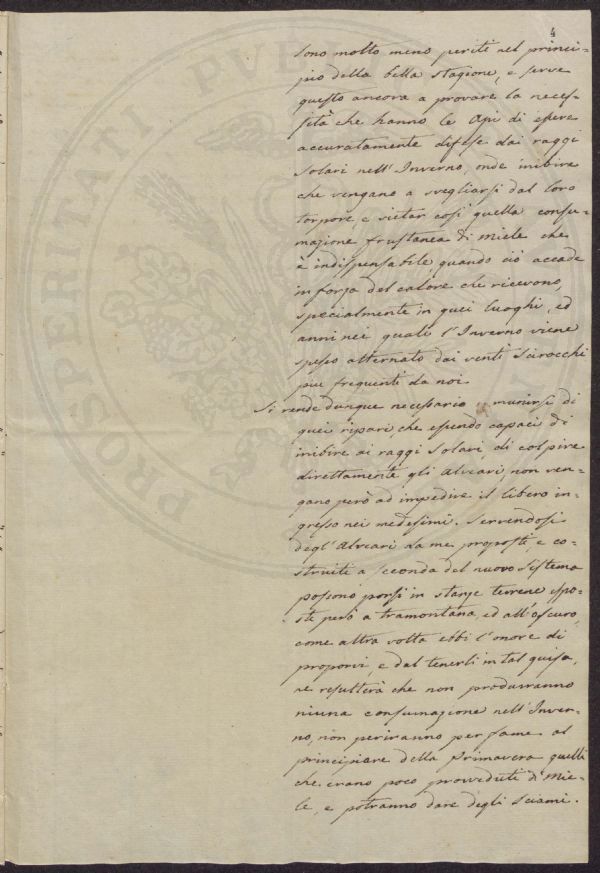 4
sono molto meno periti nel princi-
pio della bella stagione, e serve
questo ancora a provare la neces-
sità che hanno le Api di essere
accuratamente difese dai raggi
solari nell'Inverno, onde inibire
che vengano a svegliarsi dal loro
torpore, e vietar così quella consu-
mazione frustanea di miele che
è indispensabile, quando ciò accade
in forza del calore che ricevono,
specialmente in quei luoghi, ed
anni nei quali l'Inverno viene
spesso alternato dai venti Scirocchi
più frequenti da noi.
Si rende dunque necessario munirsi di
quei ripari, che essendo capaci di
inibire ai raggi solari, di colpire
direttamente gli Alveari, non ven-
gano però ad impedire il libero in-
gresso nei medesimi. Servendosi
degl'Alveari da me proposti, e co-
struiti a seconda del nuovo Sistema
possono porsi in stanze terrene espo-
ste però a tramontana, ed all'oscuro,
come altra volta ebbi l'onore di
proporvi, e dal tenerli in tal guisa,
ne resulterà che non produrranno
niuna consumazione nell'Inver-
no, non periranno per fame al
principiare della Primavera quelli
che erano poco provveduti di Mie-
le, e potranno dare degli sciami.
PROSPERITATI PVB